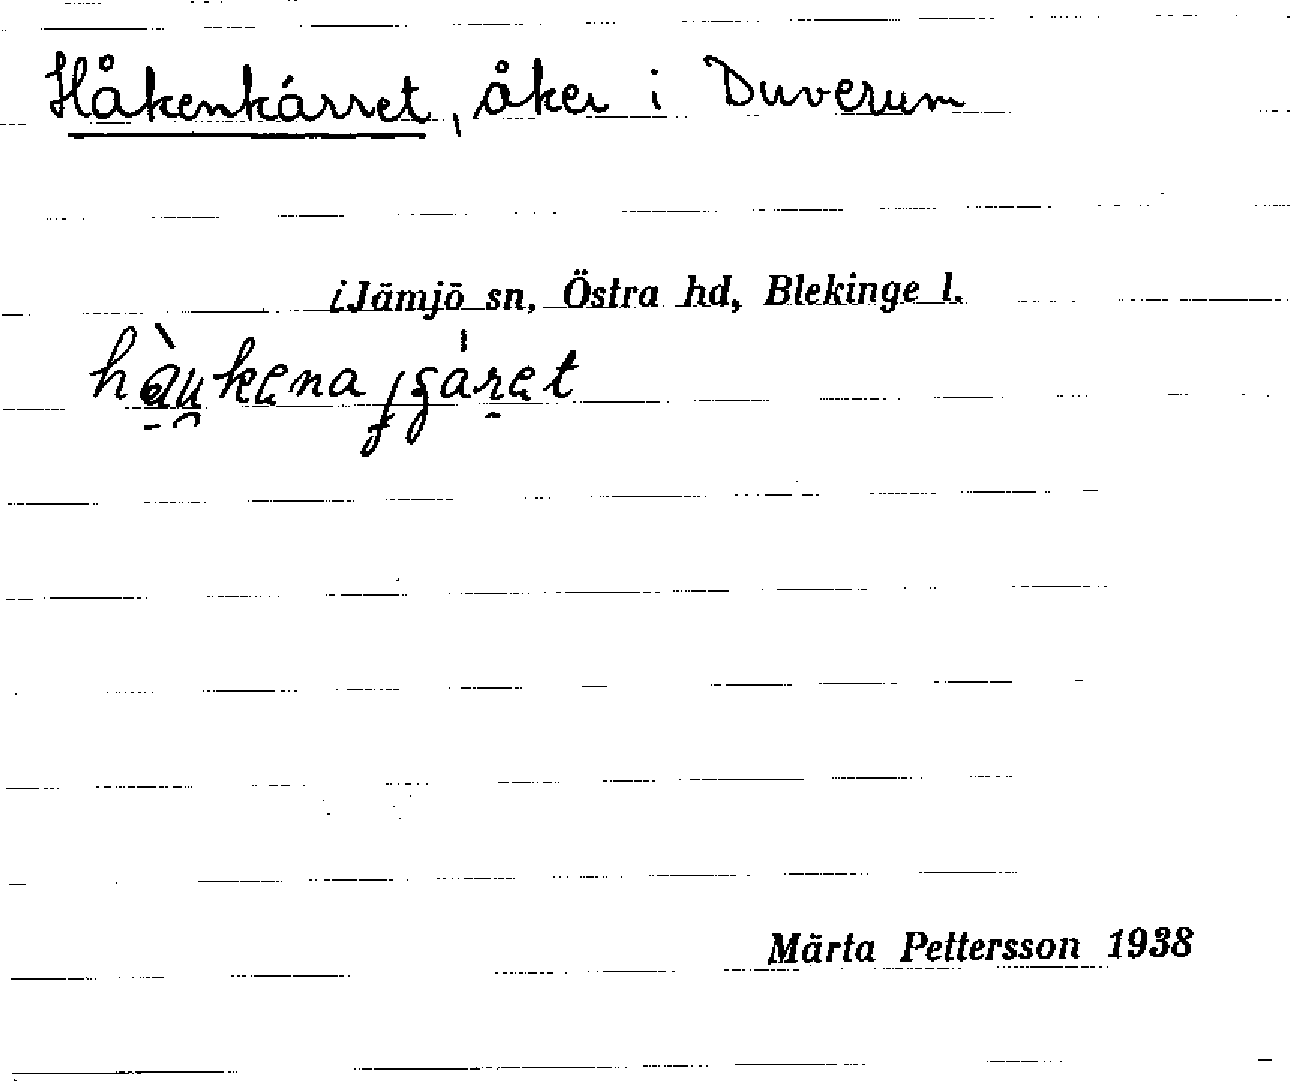 Håkenkärret, åker i Duverum
i Jämjö sn, Östra hd, Blekinge l.
Märta Pettersson 1938